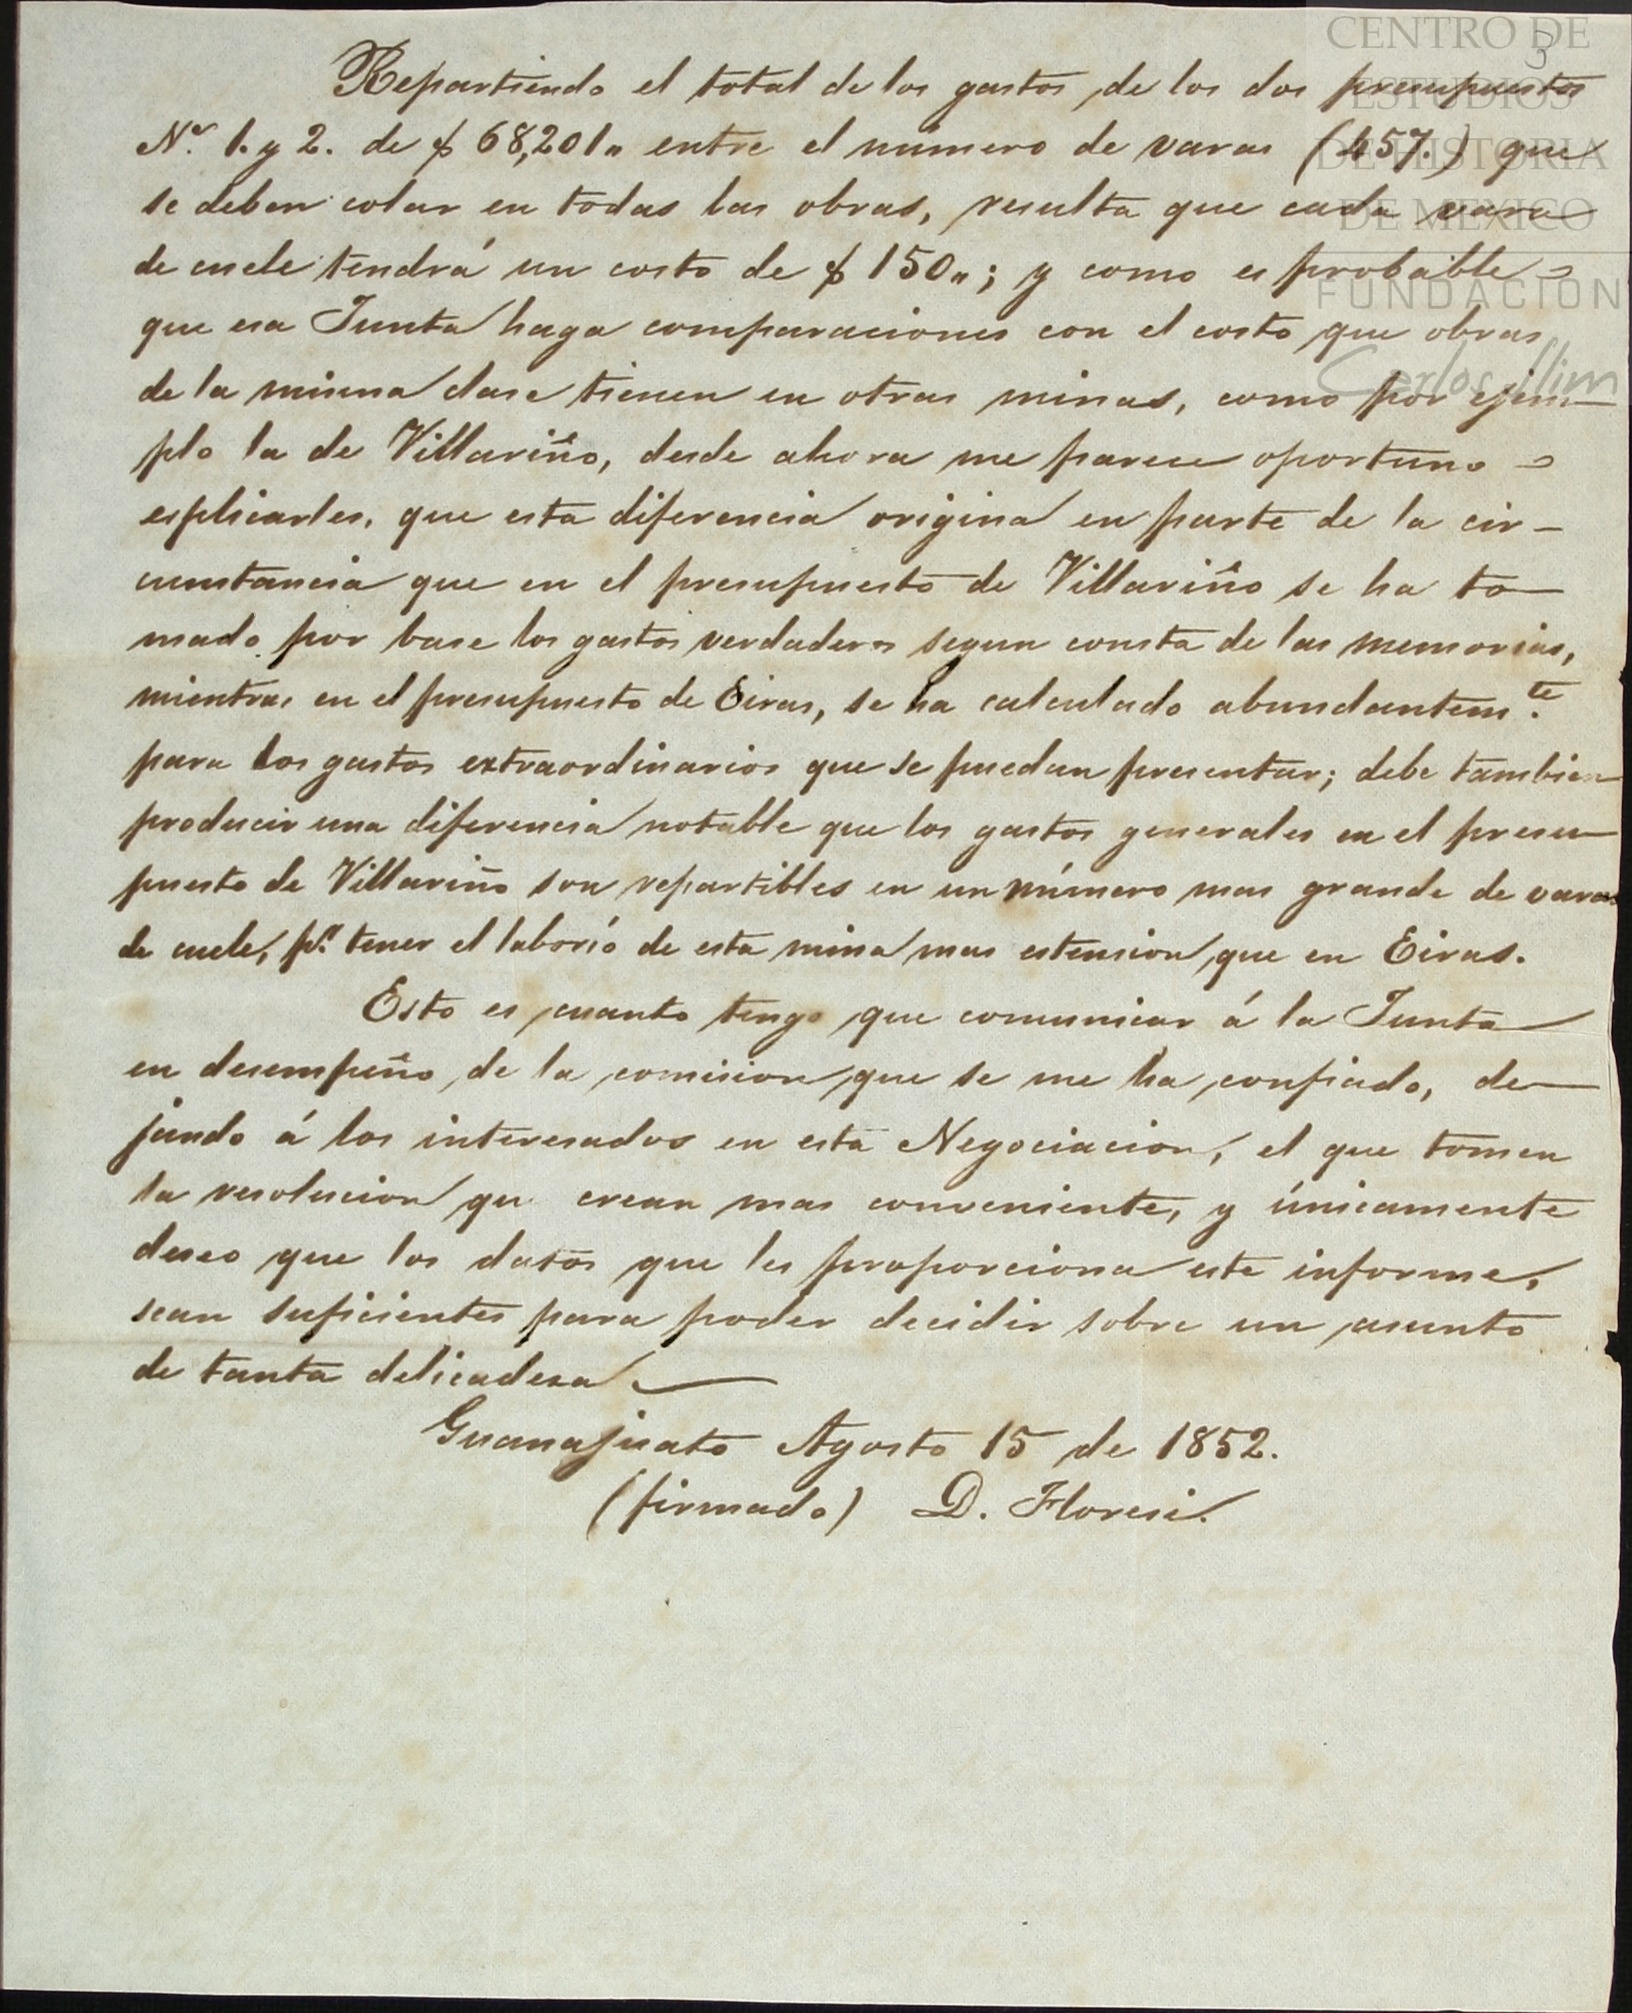 CENTRO DE
ESTUDIOS
DE HISTORIA
DE MEXICO
FUNDACION
Carlos Slim
3
Repartiendo el total de los gastos, de los dos presupuestos
Nos. 1. y 2. de $ 68,201„ entre el número de varas (457.) que
se deben colar en todas las obras, resulta que cada vara
de cuele tendrá un costo de $ 150„; y como es probable
que esa Junta haga comparaciones con el costo que obras
de la misma clase tienen en otras minas, como por ejem-
plo la de Villariño, desde ahora me parece oportuno
esplicarles, que esta diferencia origina en parte de la cir-
cunstancia que en el presupuesto de Villariño se ha to-
mado por base los gastos verdaderos segun consta de las memorias,
mientras en el presupuesto de Eiras, se ha calculado abundantemte.
para los gastos extraordinarios que se puedan presentar; debe tambien
producir una diferencia notable que los gastos generales en el presu-
puesto de Villariño son repartibles en un número mas grande de varas
de cuele, pr. tener el laborío de esta mina mas estension, que en Eiras.
Esto es cuanto tengo que comunicar á la Junta
en desempeño de la comision que se me ha confiado, de-
jando á los interesados en esta Negociacion, el que tomen
la resolucion qu crean mas conveniente, y únicamente
deseo que los datos que les proporciona este informe,
sean suficientes para poder decidir sobre un asunto
de tanta delicadesa
Guanajuato Agosto 15 de 1852.
(firmado) D. Floresi.